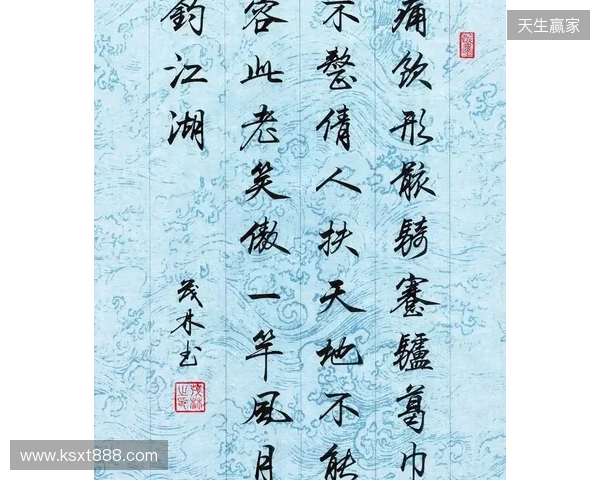 天生赢家
痛饮形骸騎蹇驢葛巾
不整倩人扶天地不能
容此老笑傲一竿風月
釣江湖
茂林书
www.ksxt888.com